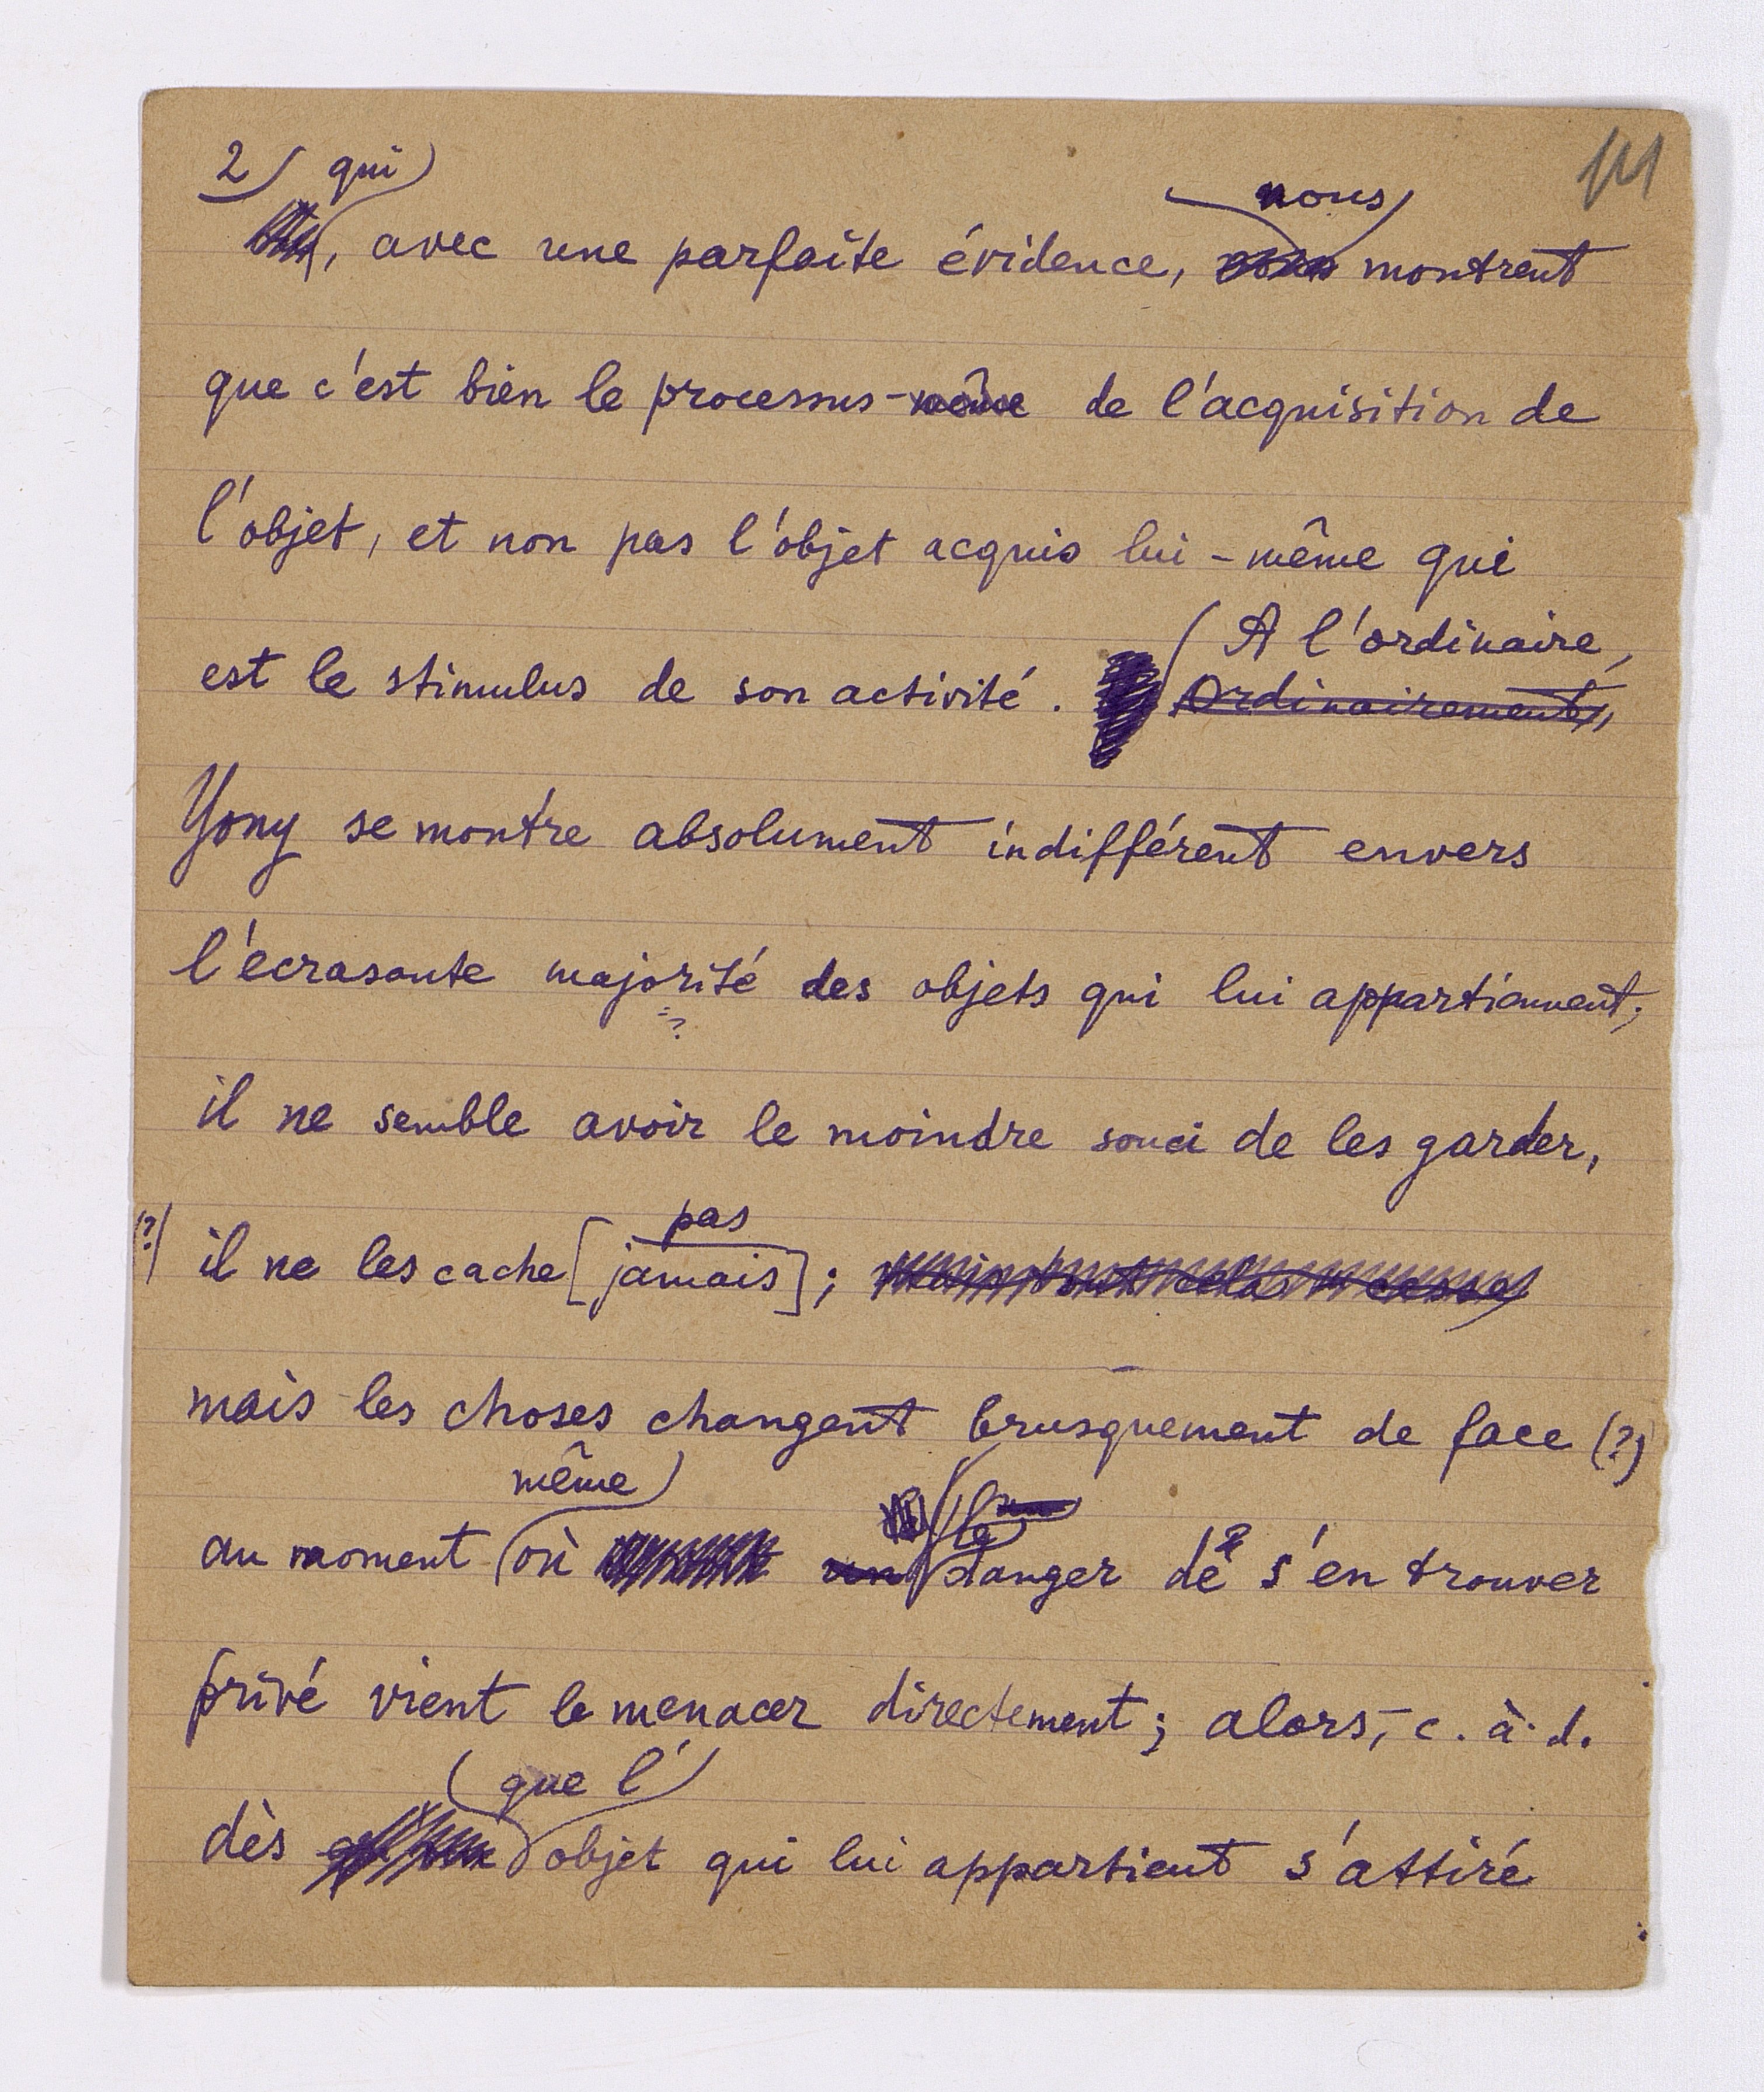 2) qui
111
nous
, avec une parfaite évidence, montrent
que c'est bien le processus-même de l'acquisition de
l'objet, et non pas l'objet acquis lui-même qui
A l'ordinaire,
est le stimulus de son activité. Ordinairement,
Yony se montre absolument indifférent envers
l'écrasante majorité des objets qui lui appartiennent;
?
il ne semble avoir le moindre souci de les garder,
pas
(?) il ne les cache [jamais];
mais les choses changent brusquement de face (?)
même
le
au moment où un danger de s'en trouver
privé vient le menacer directement; alors, c. à. d.
que l'
dès objet qui lui appartient s'attiré